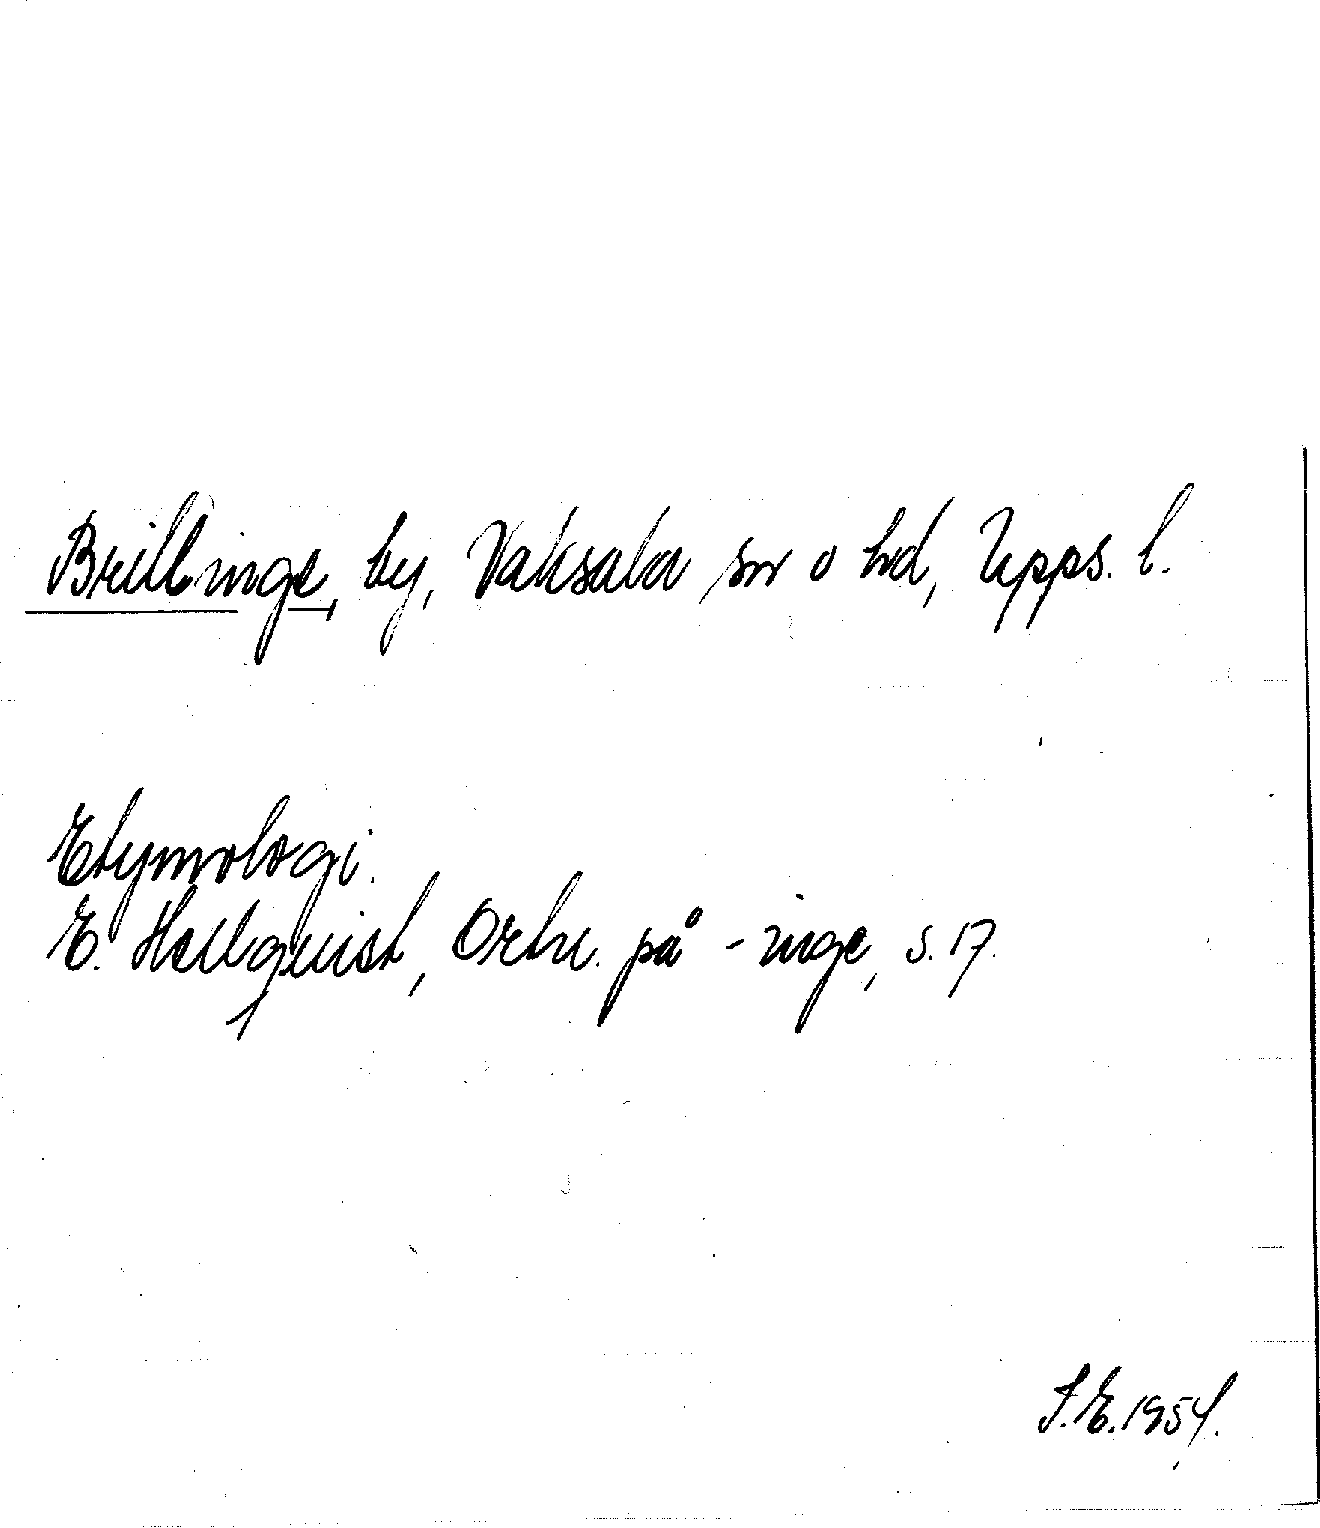 Brillinge, by, Vaksala sn o hd, Upps. l.
Etymologi.
E. Hellquist, Ortn. på -inge, s. 17.
S.E. 1954.